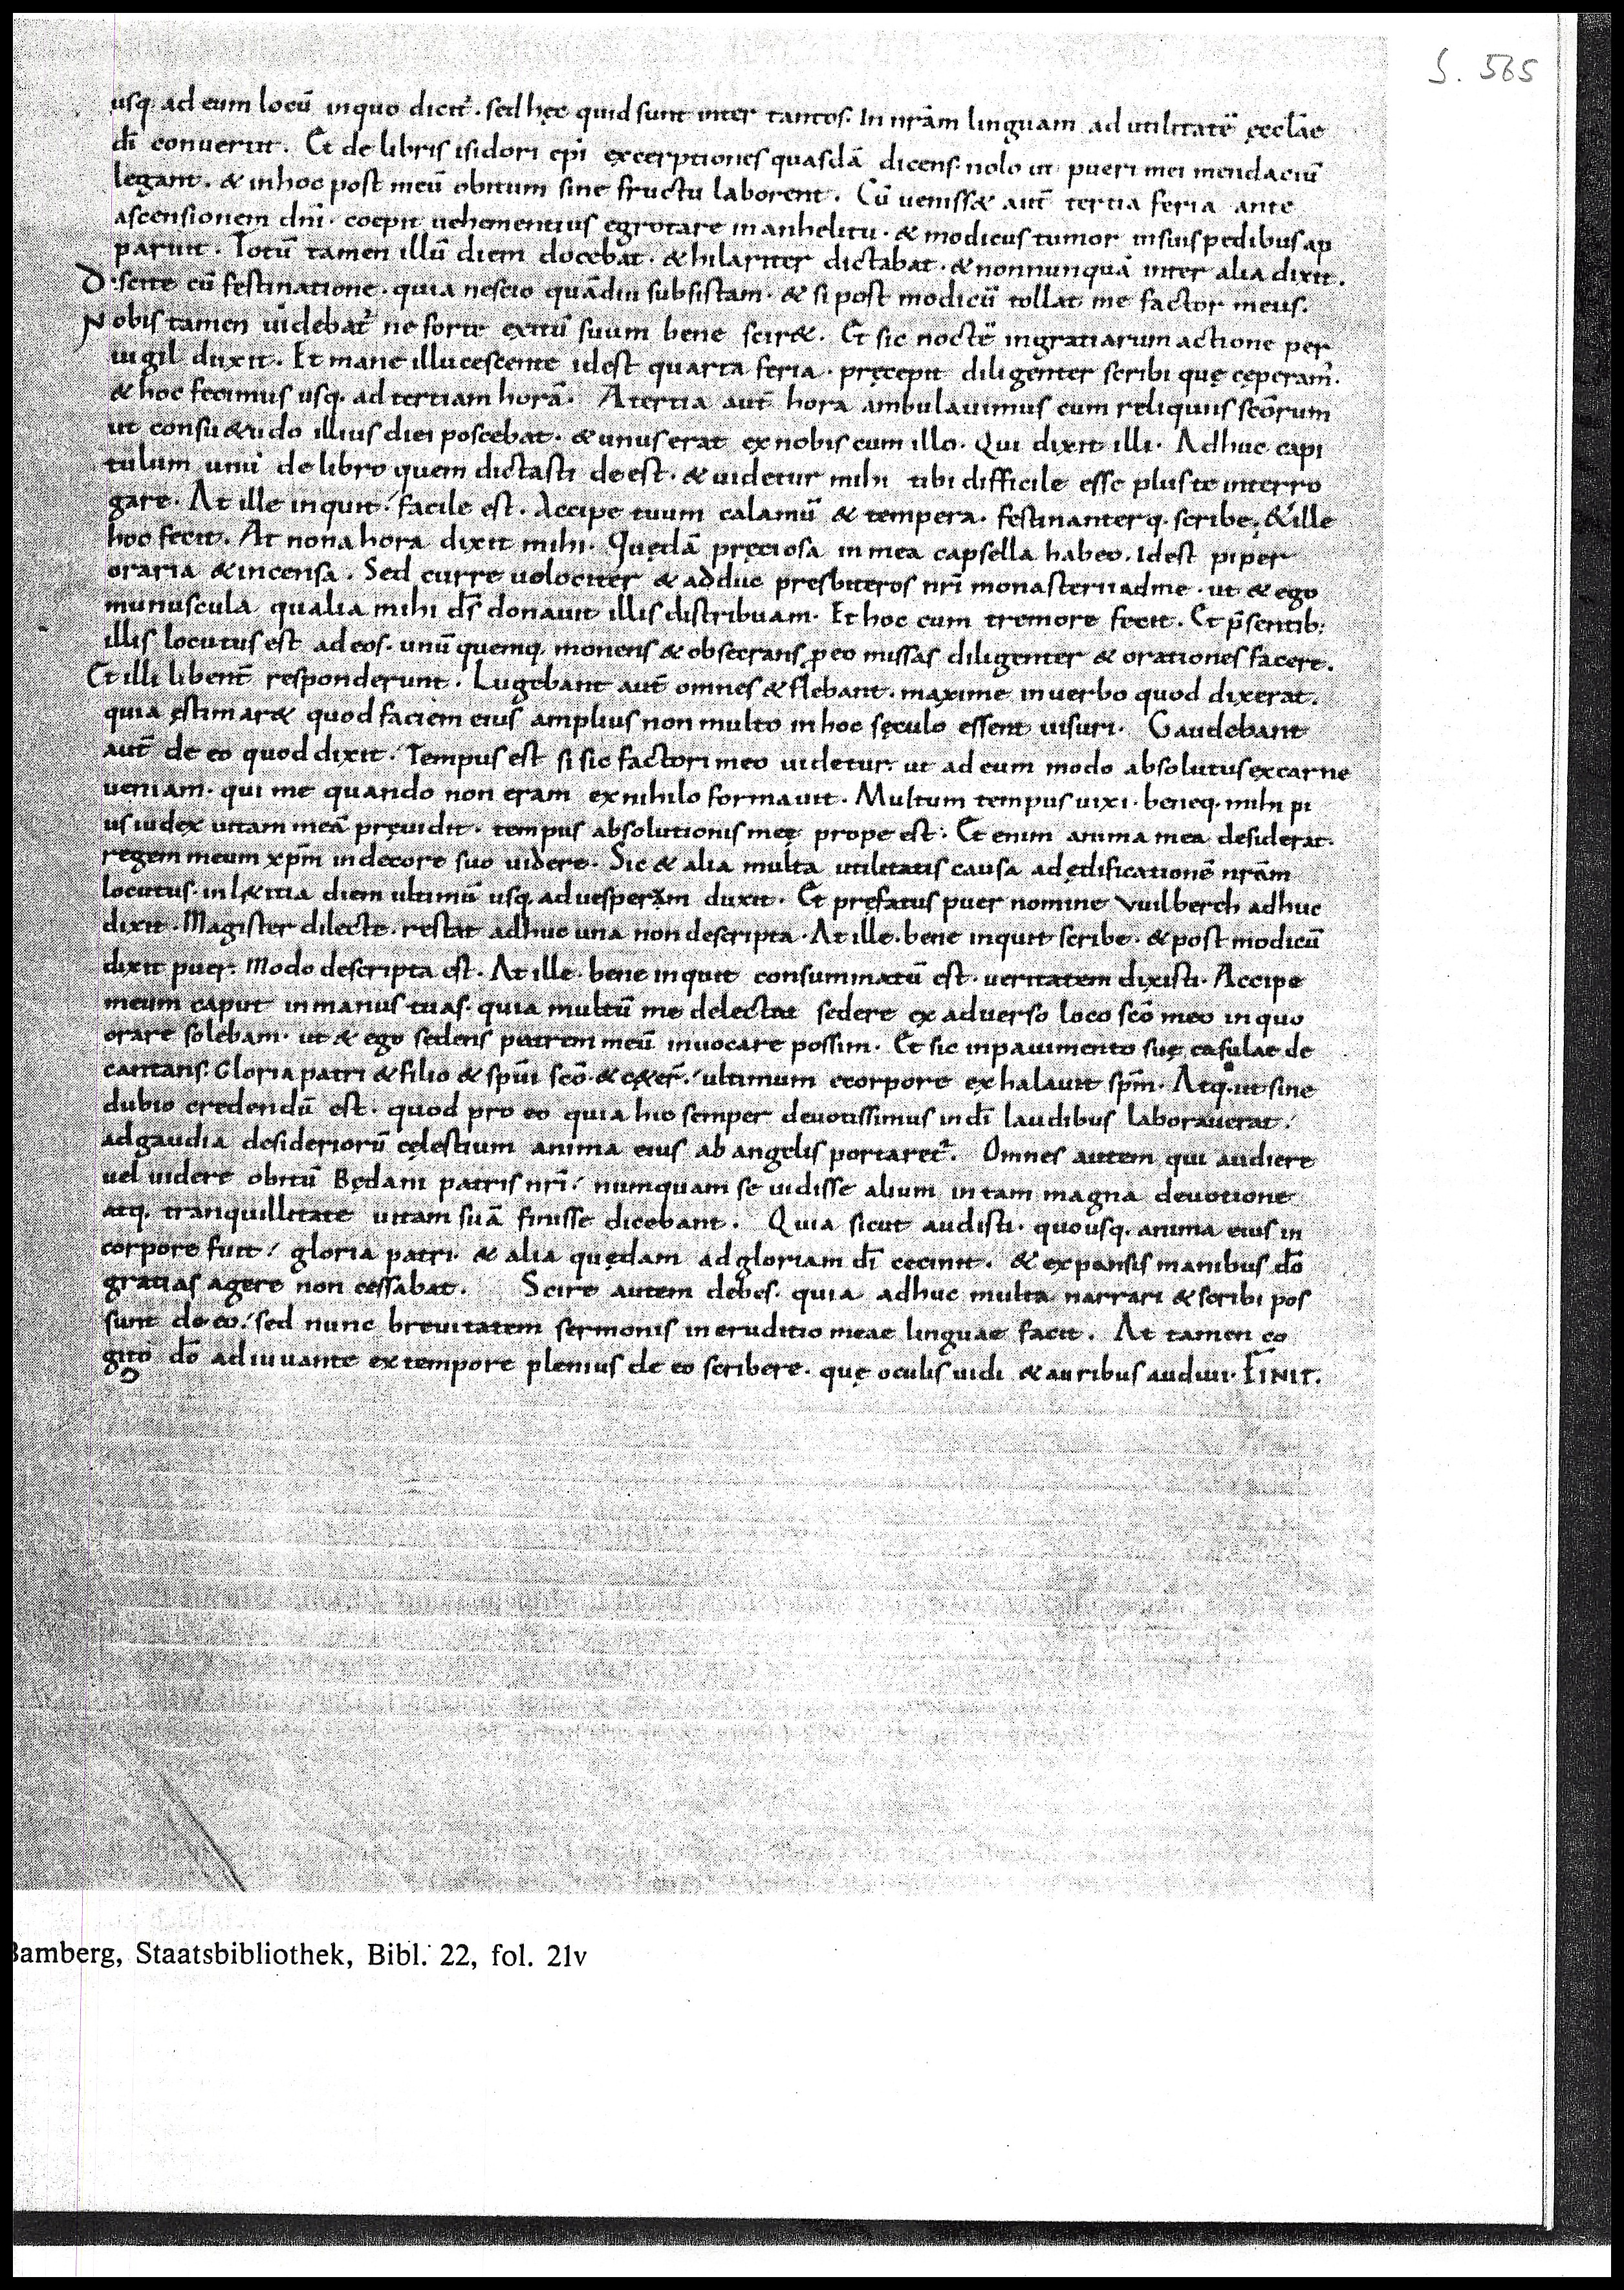 S. 565
usq. ad eum locū inquo dicit᷑. sed hęc quid sunt inter tantos. In nr̄am linguam ad utilitatē ęccl̄ae
dī conuertit. Et de libris isidori ep̄i excerptiones quasdā dicens. nolo ut pueri mei mendaciū
legant. & inhoc post meū obitum sine fructu laborent. Cū ueniss& aut̄ tertia feria ante
ascensionem dnī. coepit uehementius egrotare in anhelitu. & modicus tumor insuis pedibus ap
paruit. Totū tamen illū diem docebat. & hilariter dictabat. & nonnunquā inter alia dixit.
Discite cū festinatione. quia nescio quādiu subsistam. & si post modicū tollat me factor meus.
Nobis tamen uidebat᷑ ne forte exitū suum bene scir&. Et sic noctē ingratiarum actione per
uigil duxit. Et mane illucescente idest quarta feria. pręcepit diligenter scribi quę cęperam᷑.
& hoc fecimus usq. ad tertiam horā. A tertia aut̄ hora ambulauimus cum reliquiis scōrum
ut consu&udo illius diei poscebat. & unus erat ex nobis cum illo. Qui dixit illi. Adhuc capi
tulum unū de libro quem dictasti de est. & uidetur mihi tibi difficile esse plus te interro
gare. At ille inquit. facile est. Accipe tuum calamū & tempera. festinanterq. scribe. & ille
hoc fecit. At nona hora dixit mihi. Quędā pręciosa in mea capsella habeo. idest piper
oraria & incensa. Sed curre uolociter & adduc presbiteros nrī monasterii adme. ut & ego
munuscula qualia mihi ds̄ donauit illis distribuam. Et hoc cum tremore fecit. Et p̄sentib;
illis locutus est ad eos. unū quemq. monens & obsecrans ꝓ eo missas diligenter & orationes facere.
Et illi libent̄ responderunt. Lugebant aut̄ omnes & flebant. maxime inuerbo quod dixerat.
quia ęstimar& quod faciem eius amplius non multo in hoc sęculo essent uisuri. Gaudebant
aut̄ de eo quod dixit. Tempus est si sic factori meo uidetur. ut ad eum modo absolutus ex carne
ueniam. qui me quando non eram ex nihilo formauit. Multum tempus uixi. beneq. mihi pi
us iudex uitam meā pręuidit. tempus absolutionis meę prope est. Et enim anima mea desiderat.
regem meum xp̄m in decore suo uidere. Sic & alia multa utilitatis causa ad ędificationē nr̄am
locutus. in l&itia diem ultimū usq. ad uesperam duxit. Et pręfatus puer nomine vuilberch adhuc
dixit. Magister dilecte. restat adhuc una non descripta. At ille. bene inquit scribe. & post modicū
dixit puer. Modo descripta est. At ille. bene inquit consummatū est. ueritatem dixisti. Accipe
meum caput in manus tuas. quia multū me delectat sedere ex aduerso loco scō meo in quo
orare solebam. ut & ego sedens patrem meū inuocare possim. Et sic inpauimento suę casulae de
cantans. Gloria patri & filio & spūi scō. & c&er̄. ultimum ecorpore exhalauit spm̄. Atq. ut sine
dubio credendū est. quod pro eo quia hic semper deuotissimus in dī laudibus laborauerat.
ad gaudia desideriorū cęlestium anima eius ab angelis portaret᷑. Omnes autem qui audiere
uel uidere obitū Będani patris nrī. numquam se uidisse alium in tam magna deuotione
atq. tranquillitate uitam suā finisse dicebant. Quia sicut audisti. quousq. anima eius in
corpore fuit. gloria patri. & alia quędam ad gloriam dī cecinit. & expansis manibus dō
gratias agere non cessabat. Scire autem debes. quia adhuc multa narrari & scribi pos
sunt de eo. sed nunc breuitatem sermonis ineruditio meae linguae facit. At tamen co
gito dō adiuuante ex tempore plenius de eo scribere. quę oculis uidi & auribus audiui. FINIT.
Bamberg, Staatsbibliothek, Bibl. 22, fol. 21v